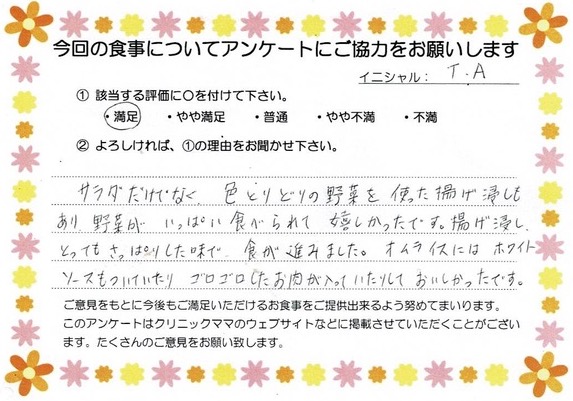 今回の食事についてアンケートにご協力をお願いします
イニシャル： T.A
① 該当する評価に〇を付けて下さい。
・満足 ・やや満足 ・普通 ・やや不満 ・不満
② よろしければ、①の理由をお聞かせ下さい。
サラダだけでなく、色とりどりの野菜を使った揚げ浸しも
あり、野菜がいっぱい食べられて嬉しかったです。揚げ浸し、
とってもさっぱりした味で、食が進みました。オムライスにはホワイト
ソースもついていたり ゴロゴロしたお肉が入っていたりしておいしかったです。
ご意見をもとに今後もご満足いただけるお食事をご提供出来るよう努めてまいります。
このアンケートはクリニックママのウェブサイトなどに掲載させていただくことがござい
ます。たくさんのご意見をお願い致します。